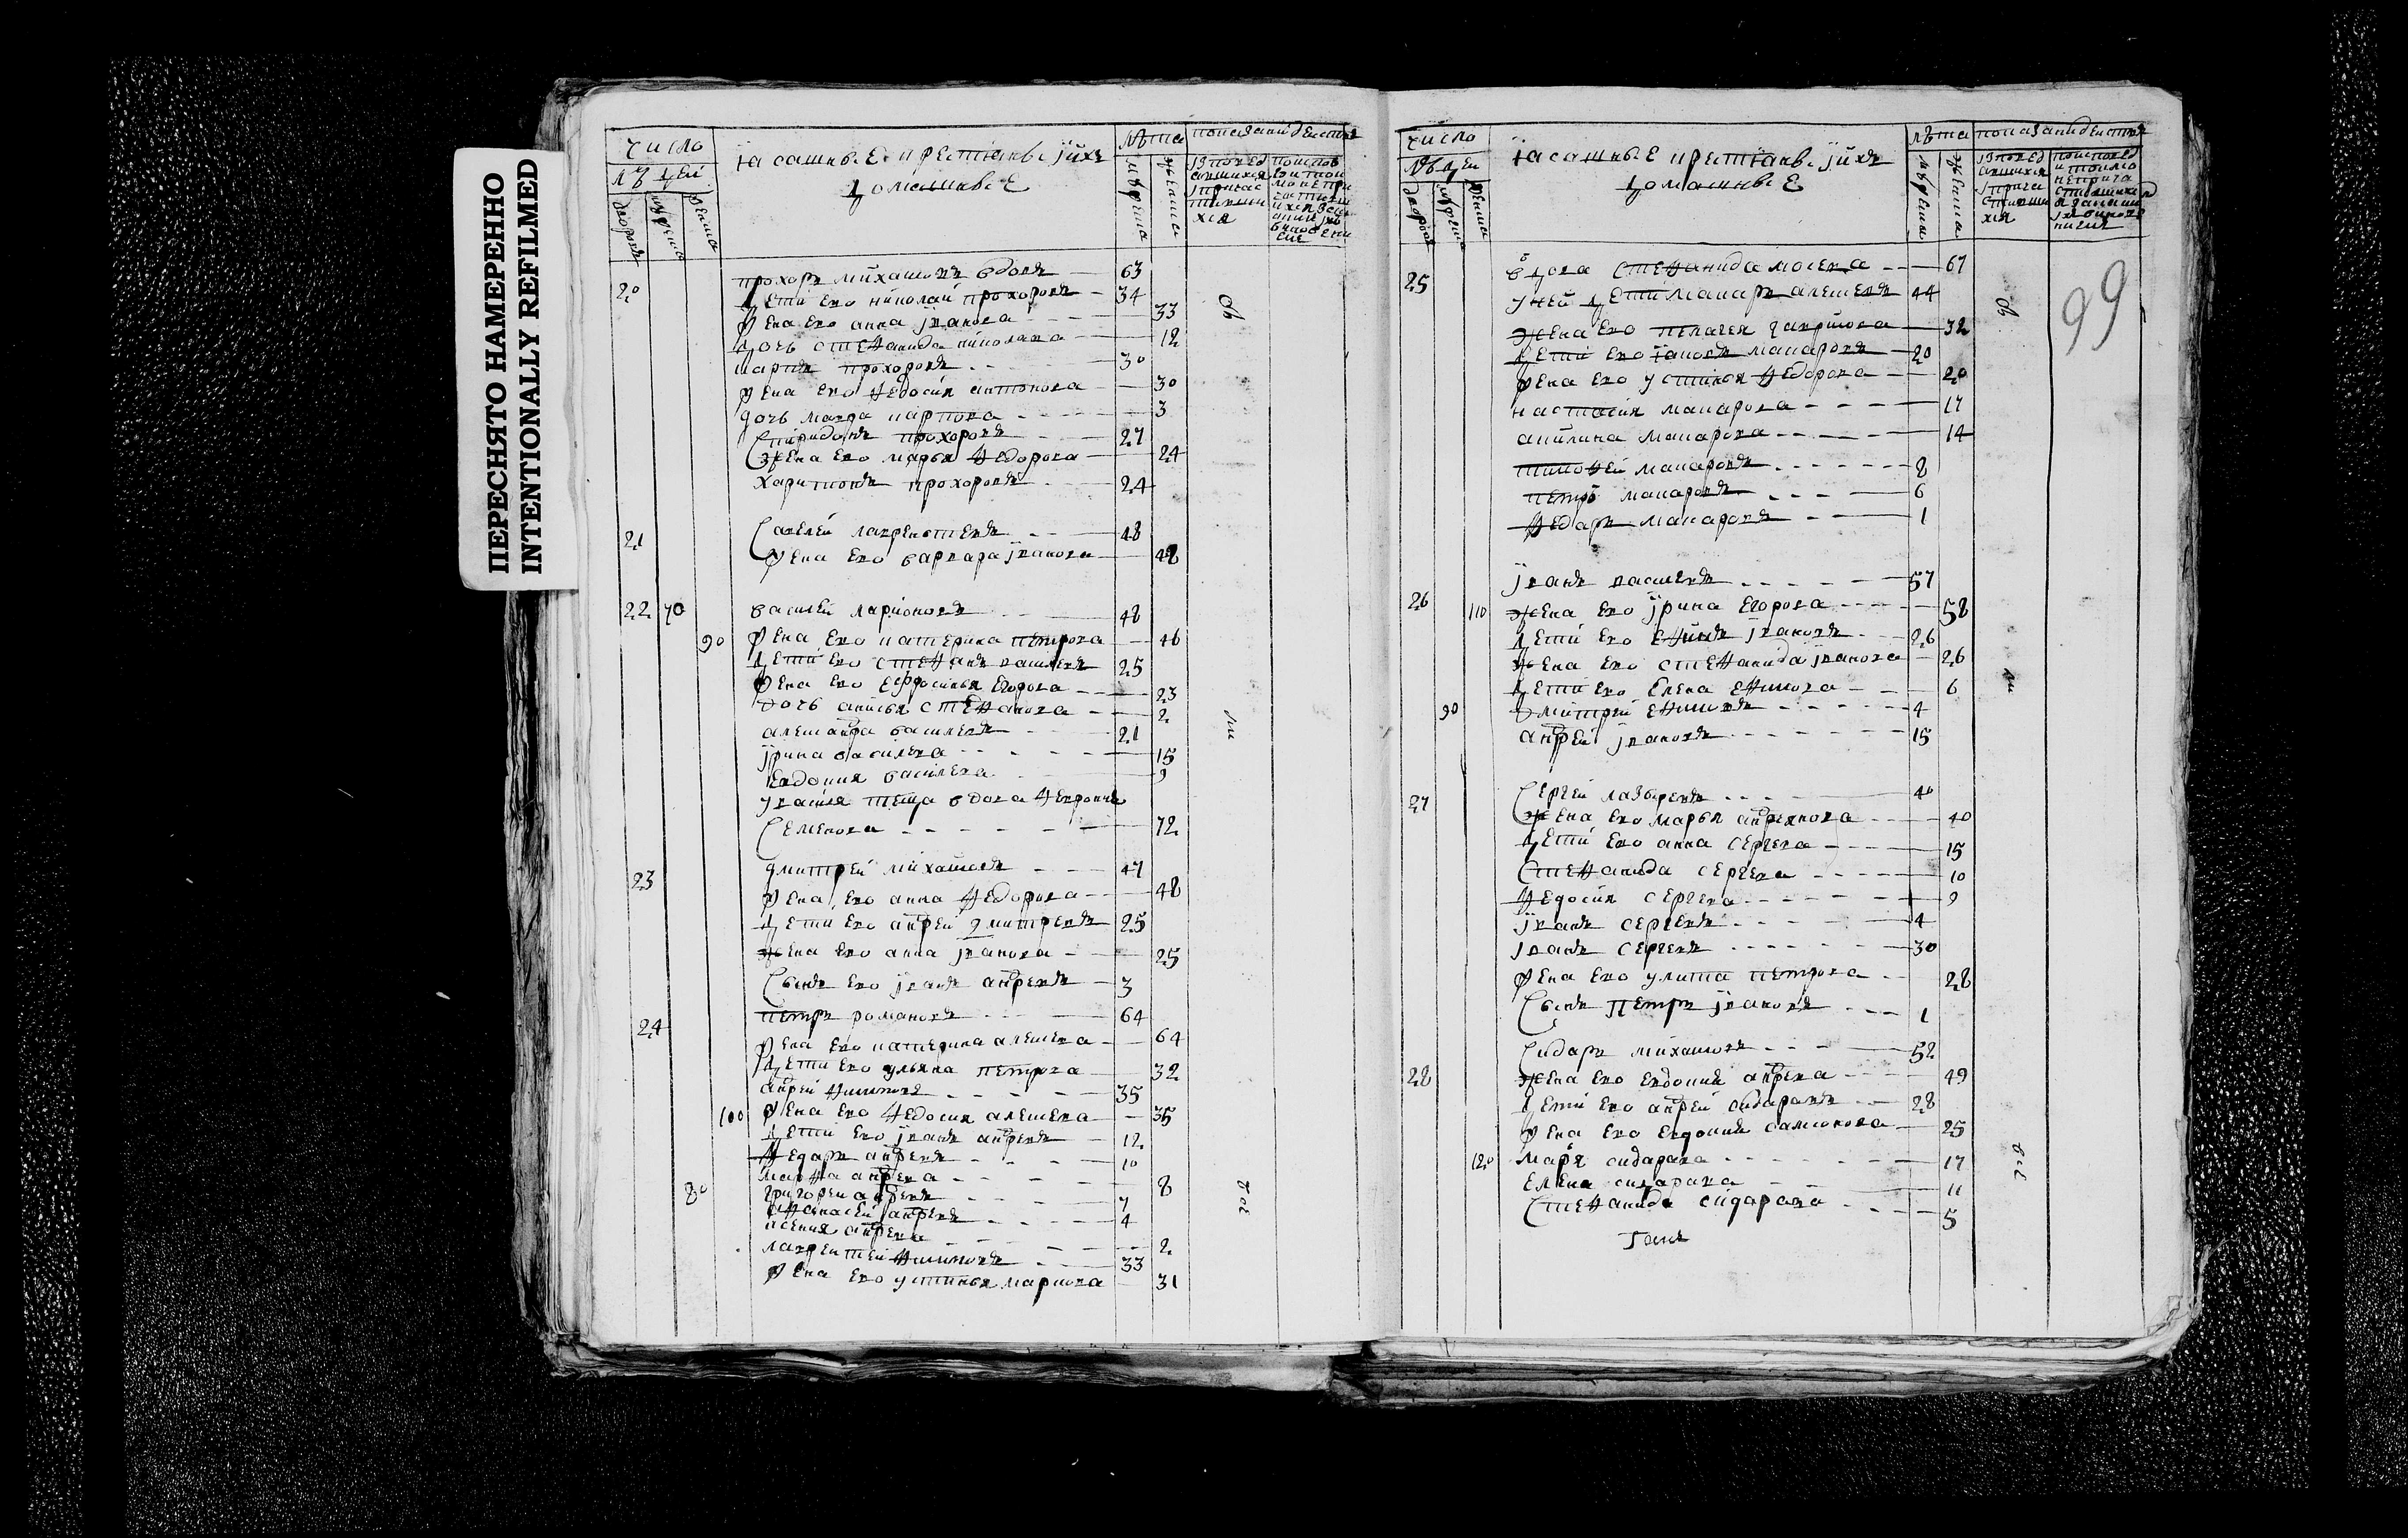 ПЕРЕСНЯТО НАМЕРЕННО
INTENTIONALLY REFILMED
число
людей
дворовъ
мужеска
женска
ясашные крестьяне и ихъ
домашные
лѣта
мужеска
женска
показани действа
20 прохоръ михаиловъ вдовъ 63
дети ево николаи прохоровъ 34
жена ево анна иванова 33
дочь стефанида николаева 12
карпъ прохоровъ 30
жена ево федосия антонова 30
дочь марфа карпова 3
Спиридонъ прохоровъ 27
жена ево марья федорова 24
харитонъ прохоровъ 24
21 Савелей лаврентиевъ 48
жена ево варвара иванова 48
22 70 василей ларионовъ 48
90 жена ево катерина петрова 46
дети ево стефанъ васильевъ 25
жена ево ефросинья егорова 23
дочь анисья стефанова 2
александра васильевъ 21
ирина васильева 15
евдокия васильева 9
у василя теща вдова феврония
Семенова 72
23 дмитрей михаиловъ 47
жена ево анна федорова 48
дети ево андрей дмитревъ 25
жена ево анна иванова 25
Сынъ ево иванъ андреевъ 3
24 петръ романовъ 64
жена ево катерина алексеева 64
дети ево ульяна петрова 32
андрей филиповъ 35
100 жена ево федосия алексеева 35
дети ево иванъ андреевъ 12
федаръ андреевъ 10
марфа андреева 8
80 григореи андреевъ 7
афанасей андреевъ 4
ксения андреева 2
лаврентей филиповъ 33
жена ево устинья маркова 31
число
людеи
дворовъ
мужеска
женска
ясашные крестьяне и ихъ
домашные
лѣта
мужеска
женска
показани действа
99
25 вдова стефанида мосеева 67
у ней дети макаръ алексеевъ 44
жена ево пелагея гаврилова 32
дети ево яковъ макаровъ 20
жена ево устинья федорова 20
настасия макарова 17
акилина макарова 14
тимофей макаровъ 8
петръ макаровъ 6
федаръ макаровъ 1
иванъ васильевъ 57
26 110 жена ево ирина егорова 58
дети ево ефимъ ивановъ 26
жена ево стефанида иванова 26
дети ево елена ефимова 6
90 дмитрей ефимовъ 4
андрей ивановъ 15
27 Сергей лазаревъ 40
жена ево марья андреянова 40
дети ево анна сергеева 15
Стефанида сергеева 10
федосия сергеева 9
иванъ сергеевъ 4
иванъ сергеевъ 30
жена ево улита петрова 28
Сынъ петръ ивановъ 1
Сидаръ михаиловъ 52
28 жена ево евдокия андреева 49
дети ево андрей сидаравъ 28
жена ево евдокия самсонова 25
120 марья сидарава 17
елена сидарава 11
Стефанида сидарава 5